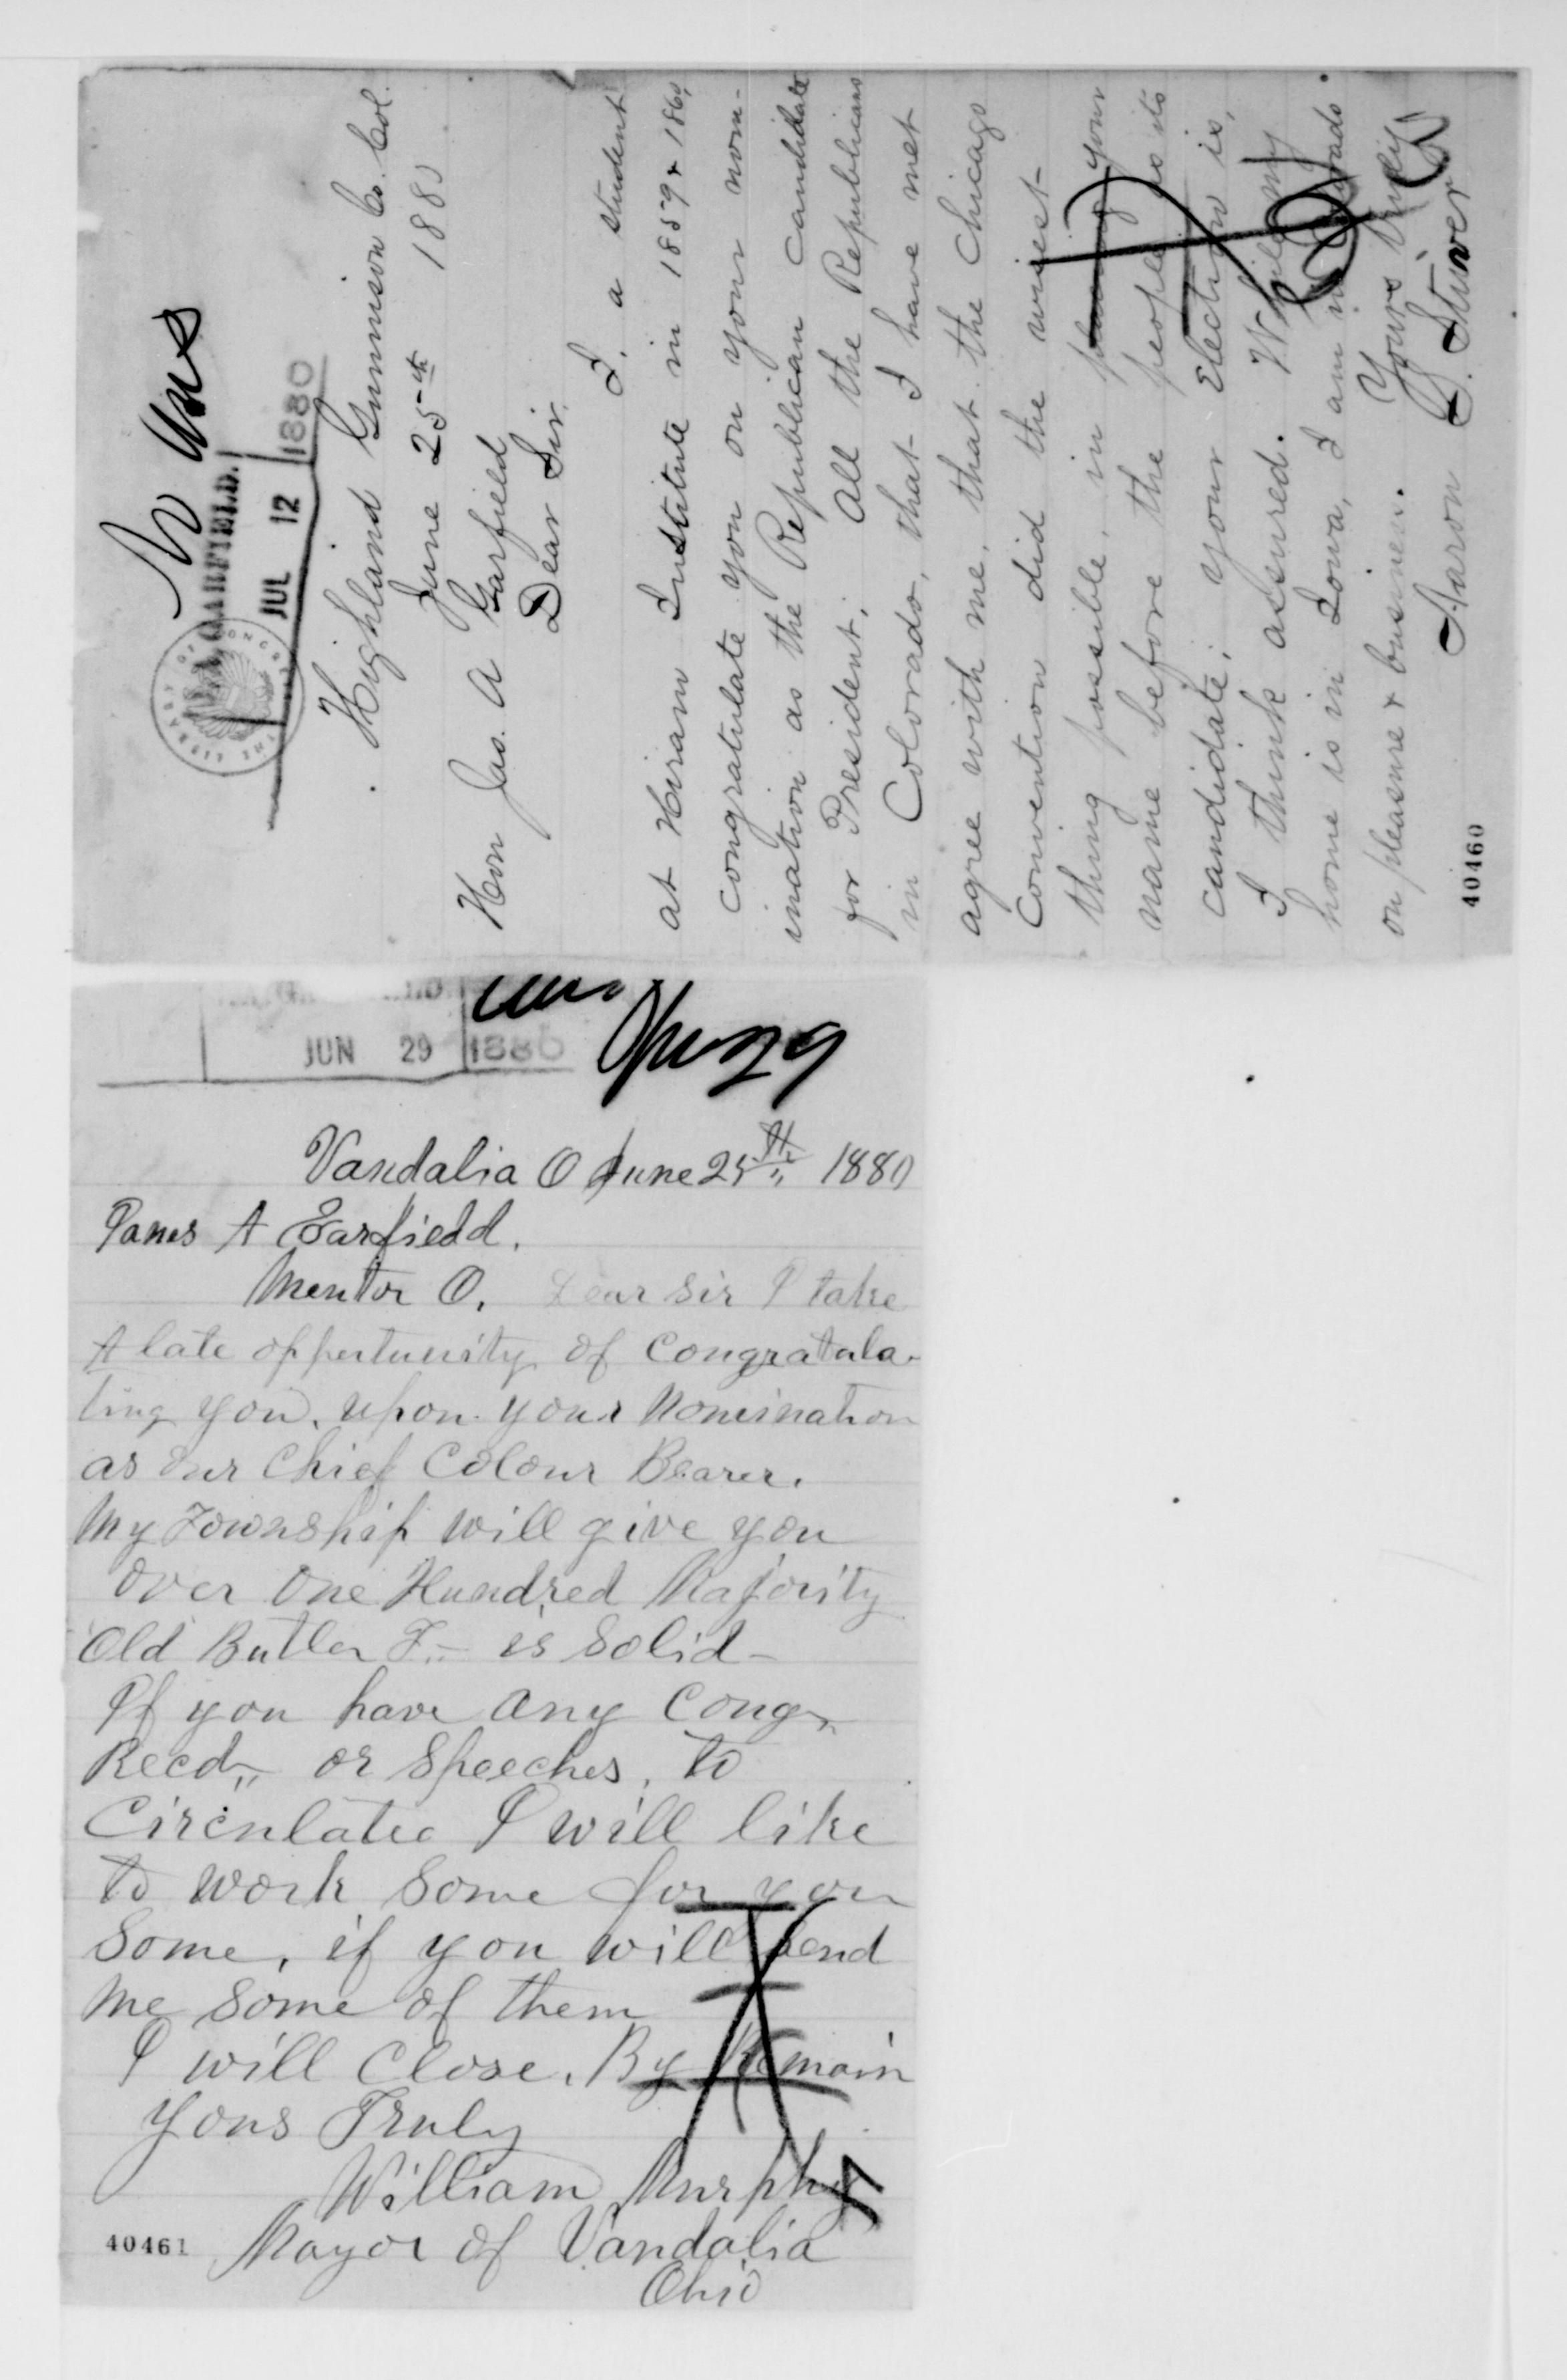 No Ans
GARFIELD.
JUL 12 1880
THE LIBRARY OF CONGRESS
Highland Gunnison Co. Col.
June 25th 1880
Hon Jas. A Garfield
Dear Sir.
I, a student
at Hiram Institute in 1859 & 1860,
congratulate you on your nom-
ination as the Republican candidate
for President. All the Republicans
in Colorado, that I have met
agree with me, that the Chicago
Convention did the wisest
thing possible, in placing your
name before the people as its
candidate; your Election is,
I think assured. While my
home is in Iowa, I am in Colorado
on pleasure & business.
Yours truly
Aaron S. Stuver
40460
JUN 29 1880
Ans
June 29
Vandalia O June 25th 1880
James A Garfield.
Mentor O. Dear Sir I take
A late oppertunity of Congratula-
ting you, upon your Nomination
as our Chief Colour Bearer.
My Township will give you
over One Hundred Majority
Old Butler T. is Solid -
If you have any Cong.
Recd,, or Speeches, to
Circulate I will like
to work Some for you
Some, if you will Send
me Some of them
I will Close, By Remain
Yours Truly
William Murphy
40461 Mayor of Vandalia
Ohio